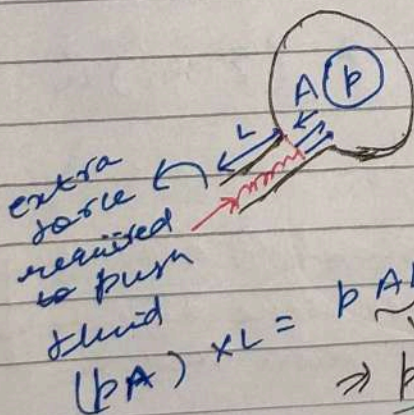 A p
L
extra
force
required
to push
fluid
(pA) × L = p A
⇒ p